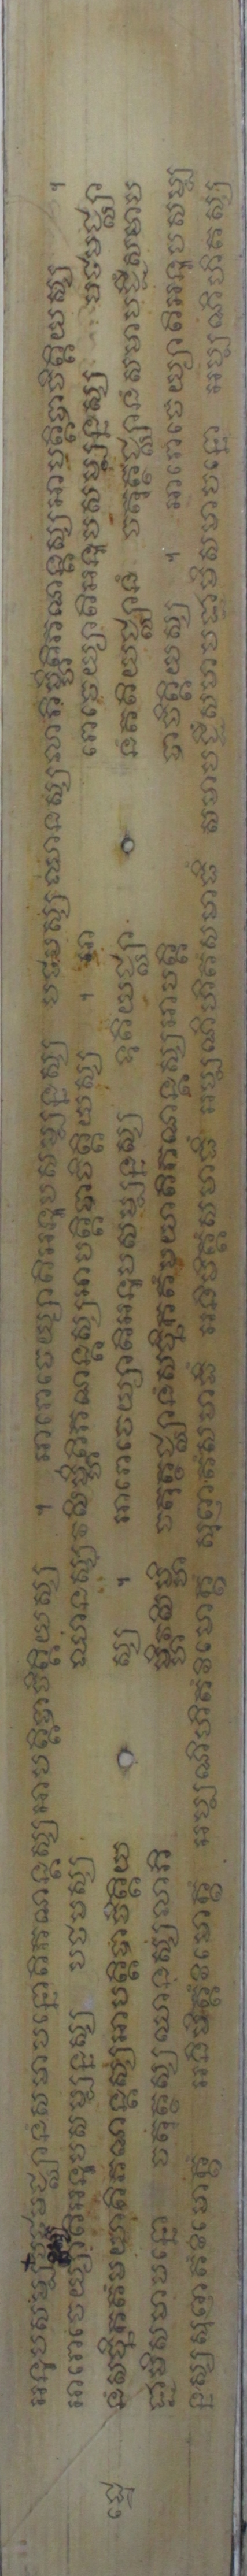 អនុបសម្បបឋមជ្ឈានំសមាបន្នោតិភណន្តស្សអាបត្តិបាចិត្តិយស្ស ។ អារោចេយ្យាតិអនុបសម្បន្នស្ស បឋមស្សឈានស្សលាភិម្ហីតិភណន្តស្សអាបត្តិបាចិត្តិយស្ស ។
អារោចេយ្យាតិអនុបសម្បន្នស្ស បឋមស្ស ឈានស្សវសិម្ហីតិភណន្តស្សអាបត្តិបាចិត្តិយស្ស ។ អា រោចេយ្យាតិអនុបសម្បន្នស្ស បឋមជ្ឈា
នំសច្ឆិកតំមយាតិភណន្តស្សអាបត្តិបាចិត្តិយ ស្ស ។ អារោចេយ្យាតិអនុបសម្បន្នស្ស ទុតិយជ្ឈា នំតតិយជ្ឈានំ ចតុត្ថជ្ឈានំសមាបជ្ជឹសមាប
ជ្ជាមិសមាបន្នោ ចតុត្ថស្សឈានស្សលាភិ ម្ហីវសិម្ហិ ចតុត្ថជ្ឈានំសច្ឆិកតំមយាតិភណន្តស្សអាបត្តិ បាចិត្តិយស្ស ។ អារោចេយ្យាតិអនុបសម្ប
ន្នស្សសុញតំវិមោក្ខំ អនិមិត្តំវិមោក្ខំ អប្បណិហិតំវិមោក្ខំ សុញតំសមាធឹ អនិមិត្តំសមាធឹ អប្បណិហិតំសមាធឹ សមាបជ្ជឹសមាបជ្ជាមិសមាបន្នោ អប្បណិហិតស្ស